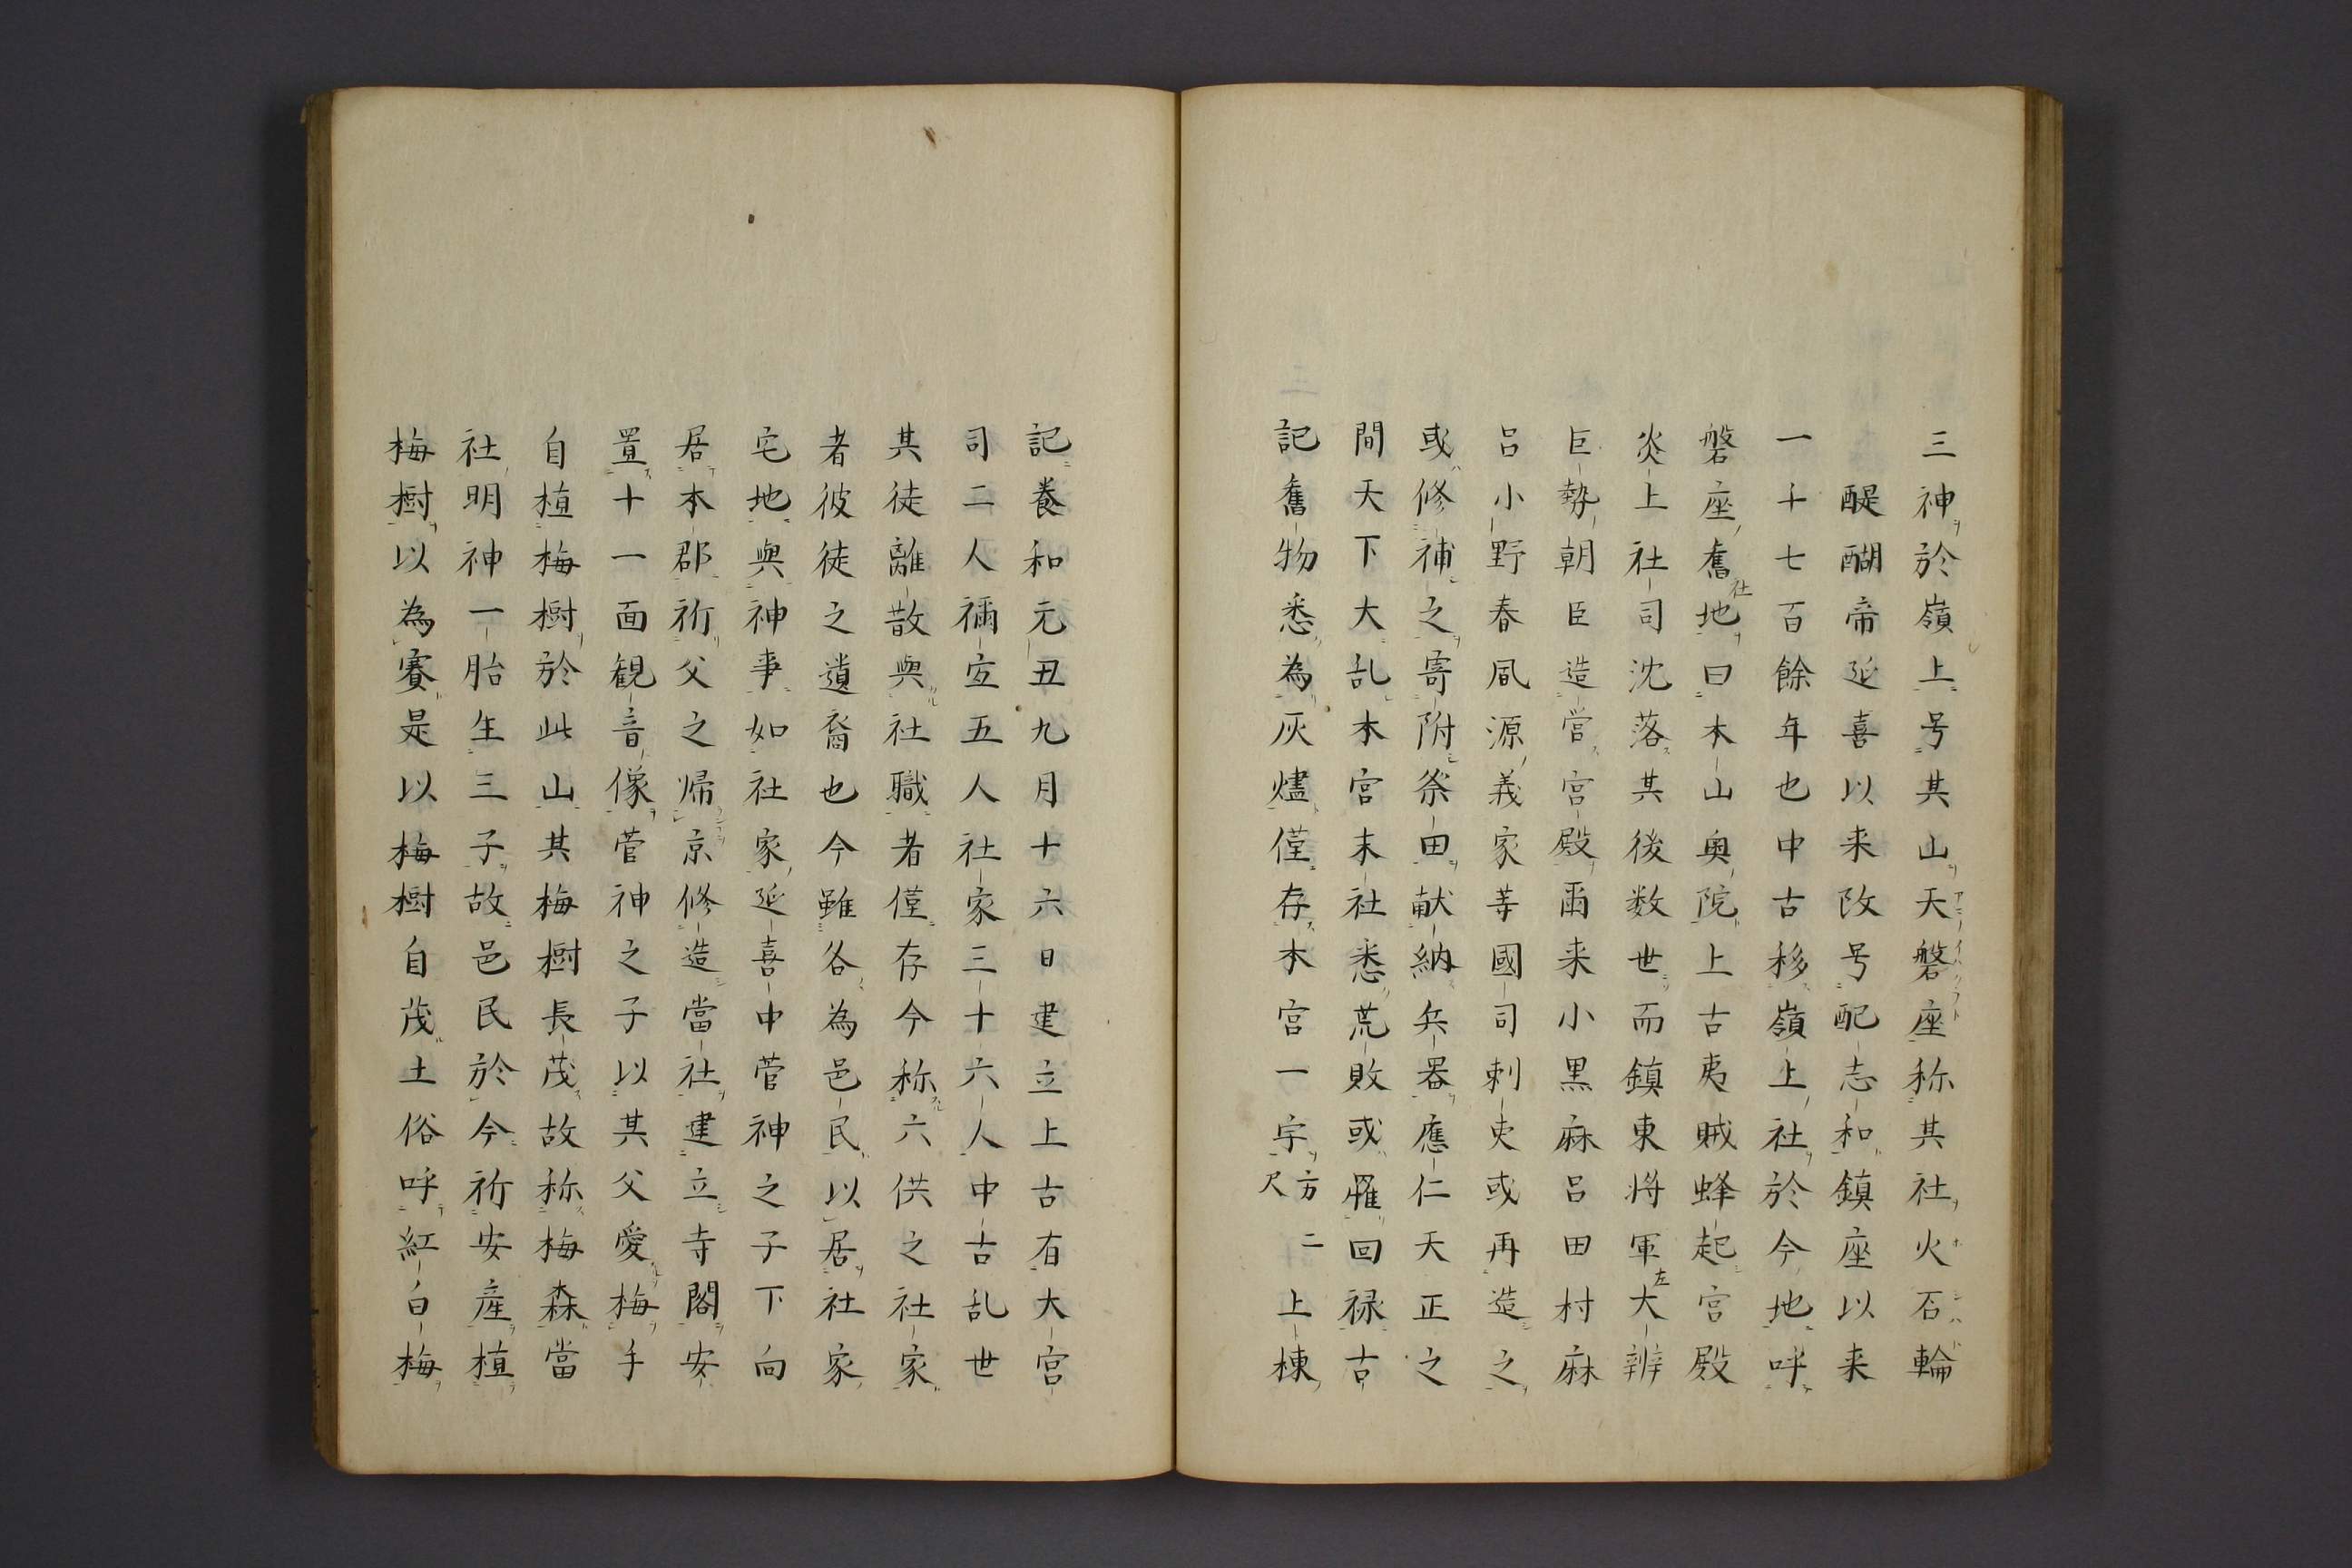 三神於嶺上号其山天磐座称其社火石輪
醍醐帝延喜以来改号配志和鎮座以来
一千七百餘年也中古移嶺上社於今地呼
磐座舊社地曰木山奥院上古夷賊蜂起宮殿
炎上社司沈落其後数世而鎮東将軍左大辨
巨勢朝臣造営宮殿爾来小黒麻呂田村麻
呂小野春風源義家等國司刺吏或再造之
或修補之寄附祭田献納兵器應仁天正之
間天下大乱本宮末社悉荒敗或罹回禄古
記舊物悉為灰燼僅存本宮一宇方二尺上棟
記養和元丑九月十六日建立上古有大宮
司二人禰宜五人社家三十六人中古乱世
其徒離散與社職者僅存今称六供之社家
者彼徒之遺裔也今雖各為邑民以居社家
宅地與神事如社家延喜中菅神之子下向
居本郡祈父之帰京修造當社建立寺閣安
置十一面観音像菅神之子以其父愛梅手
自植梅樹於此山其梅樹長茂故称梅森當
社明神一胎生三子故邑民於今祈安産植
梅樹以為賽是以梅樹自茂土俗呼紅白梅